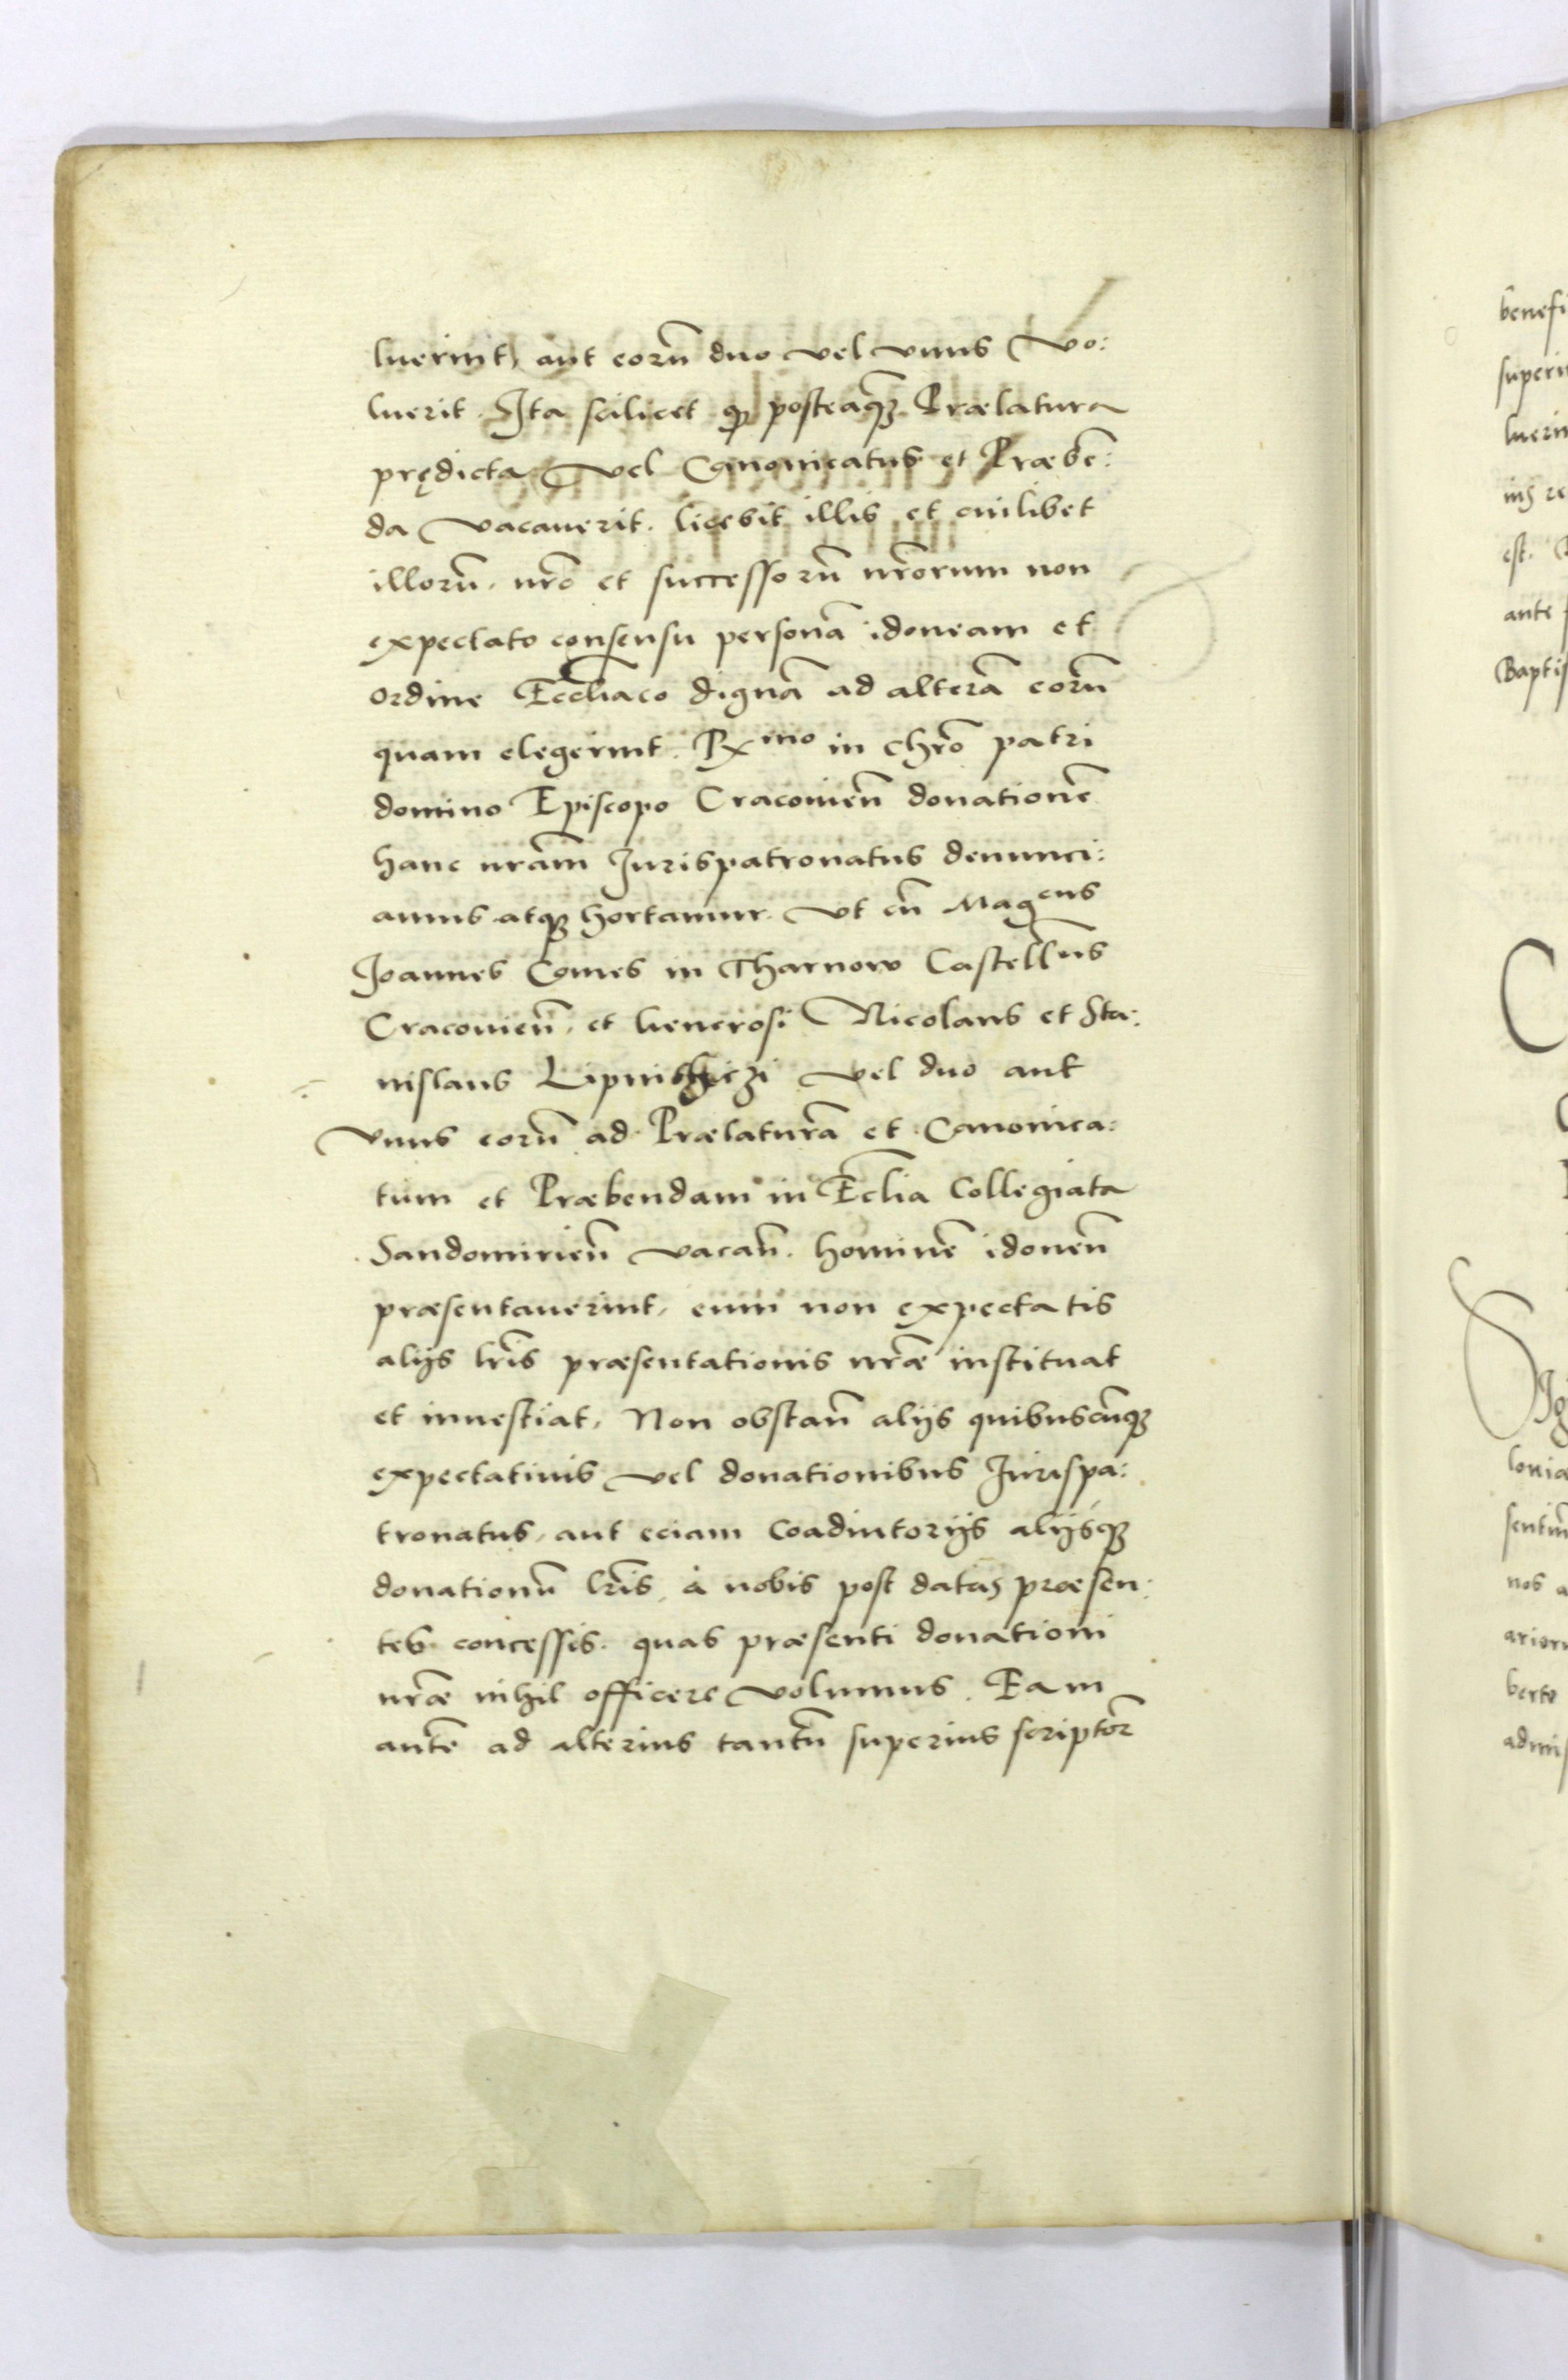 luerint, aut eorū duo vel vnus Vo:
luerit. Ita scilicet qꝫ posteaqꝫ Prælatura
prędicta vel Canonicatus et Præbē:
da vacauerit. licebit illis et cuilibet
illorū, nr̄o et successorū nr̄orum non
expectato consensu personā idoneam et
ordine Eccl̄iaco dignā ad alterā eorū
quam elegerint. Rx̄mo in Chr̄o patri
domino Episcopo Cracovien̄ donationē
hanc nr̄am Jurispatronatus denunci:
amus atqꝫ hortamur. vt cū Magcus
Joannes Comes in Tharnow Castellūs
Cracovien̄, et Generosi Nicolaus et Sta:
nislaus Lipnichczi vel duo aut
vnus eorū ad Prælaturā et Canonica:
tum et Præbendam in Eccl̄ia Collegiata
Sandomirien̄ vacan̄. hominē idoneū
præsentauerint, eum non expectatis
alijs lr̄is præsentationis nr̄æ instituat
et inuestiat, Non obstan̄ alijs quibuscūqꝫ
expectatiuis vel donationibus Jurispa:
tronatus, aut eciam Coadiutorijs alijsqꝫ
donationū lr̄is, à nobis post datas præsen:
tes concessis. quas præsenti donationi
nr̄æ nihil officere volumus. Eam
autē ad alterius tantū superius scriptor̄
benefi
superi
luerin
est.
ante
Baptis
C
loniæ
sentim
nos a
arioru
berto
admis